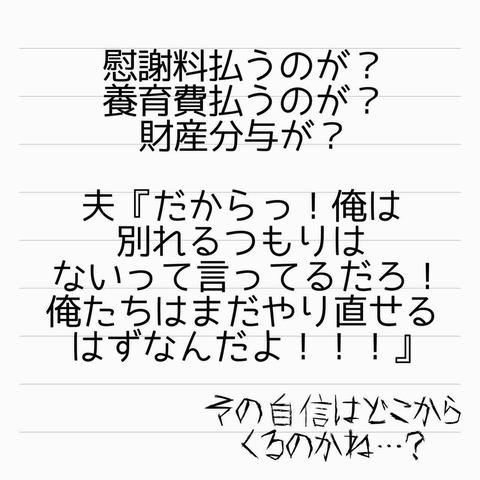 慰謝料払うのが？
養育費払うのが？
財産分与が？
夫『だからっ！俺は
別れるつもりは
ないって言ってるだろ！
俺たちはまだやり直せる
はずなんだよ！！！』
その自信はどこから
くるのかね…？